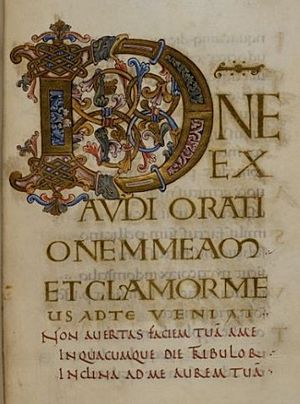 DNE
EX
AVDI ORATI
ONEM MEAM
ET CLAMOR ME
US AD TE VENIAT
NON AVERTAS FACIEM TUĀ A ME
IN QUACUMQUE DIE TRIBULOR
INCLINA AD ME AUREM TUĀ